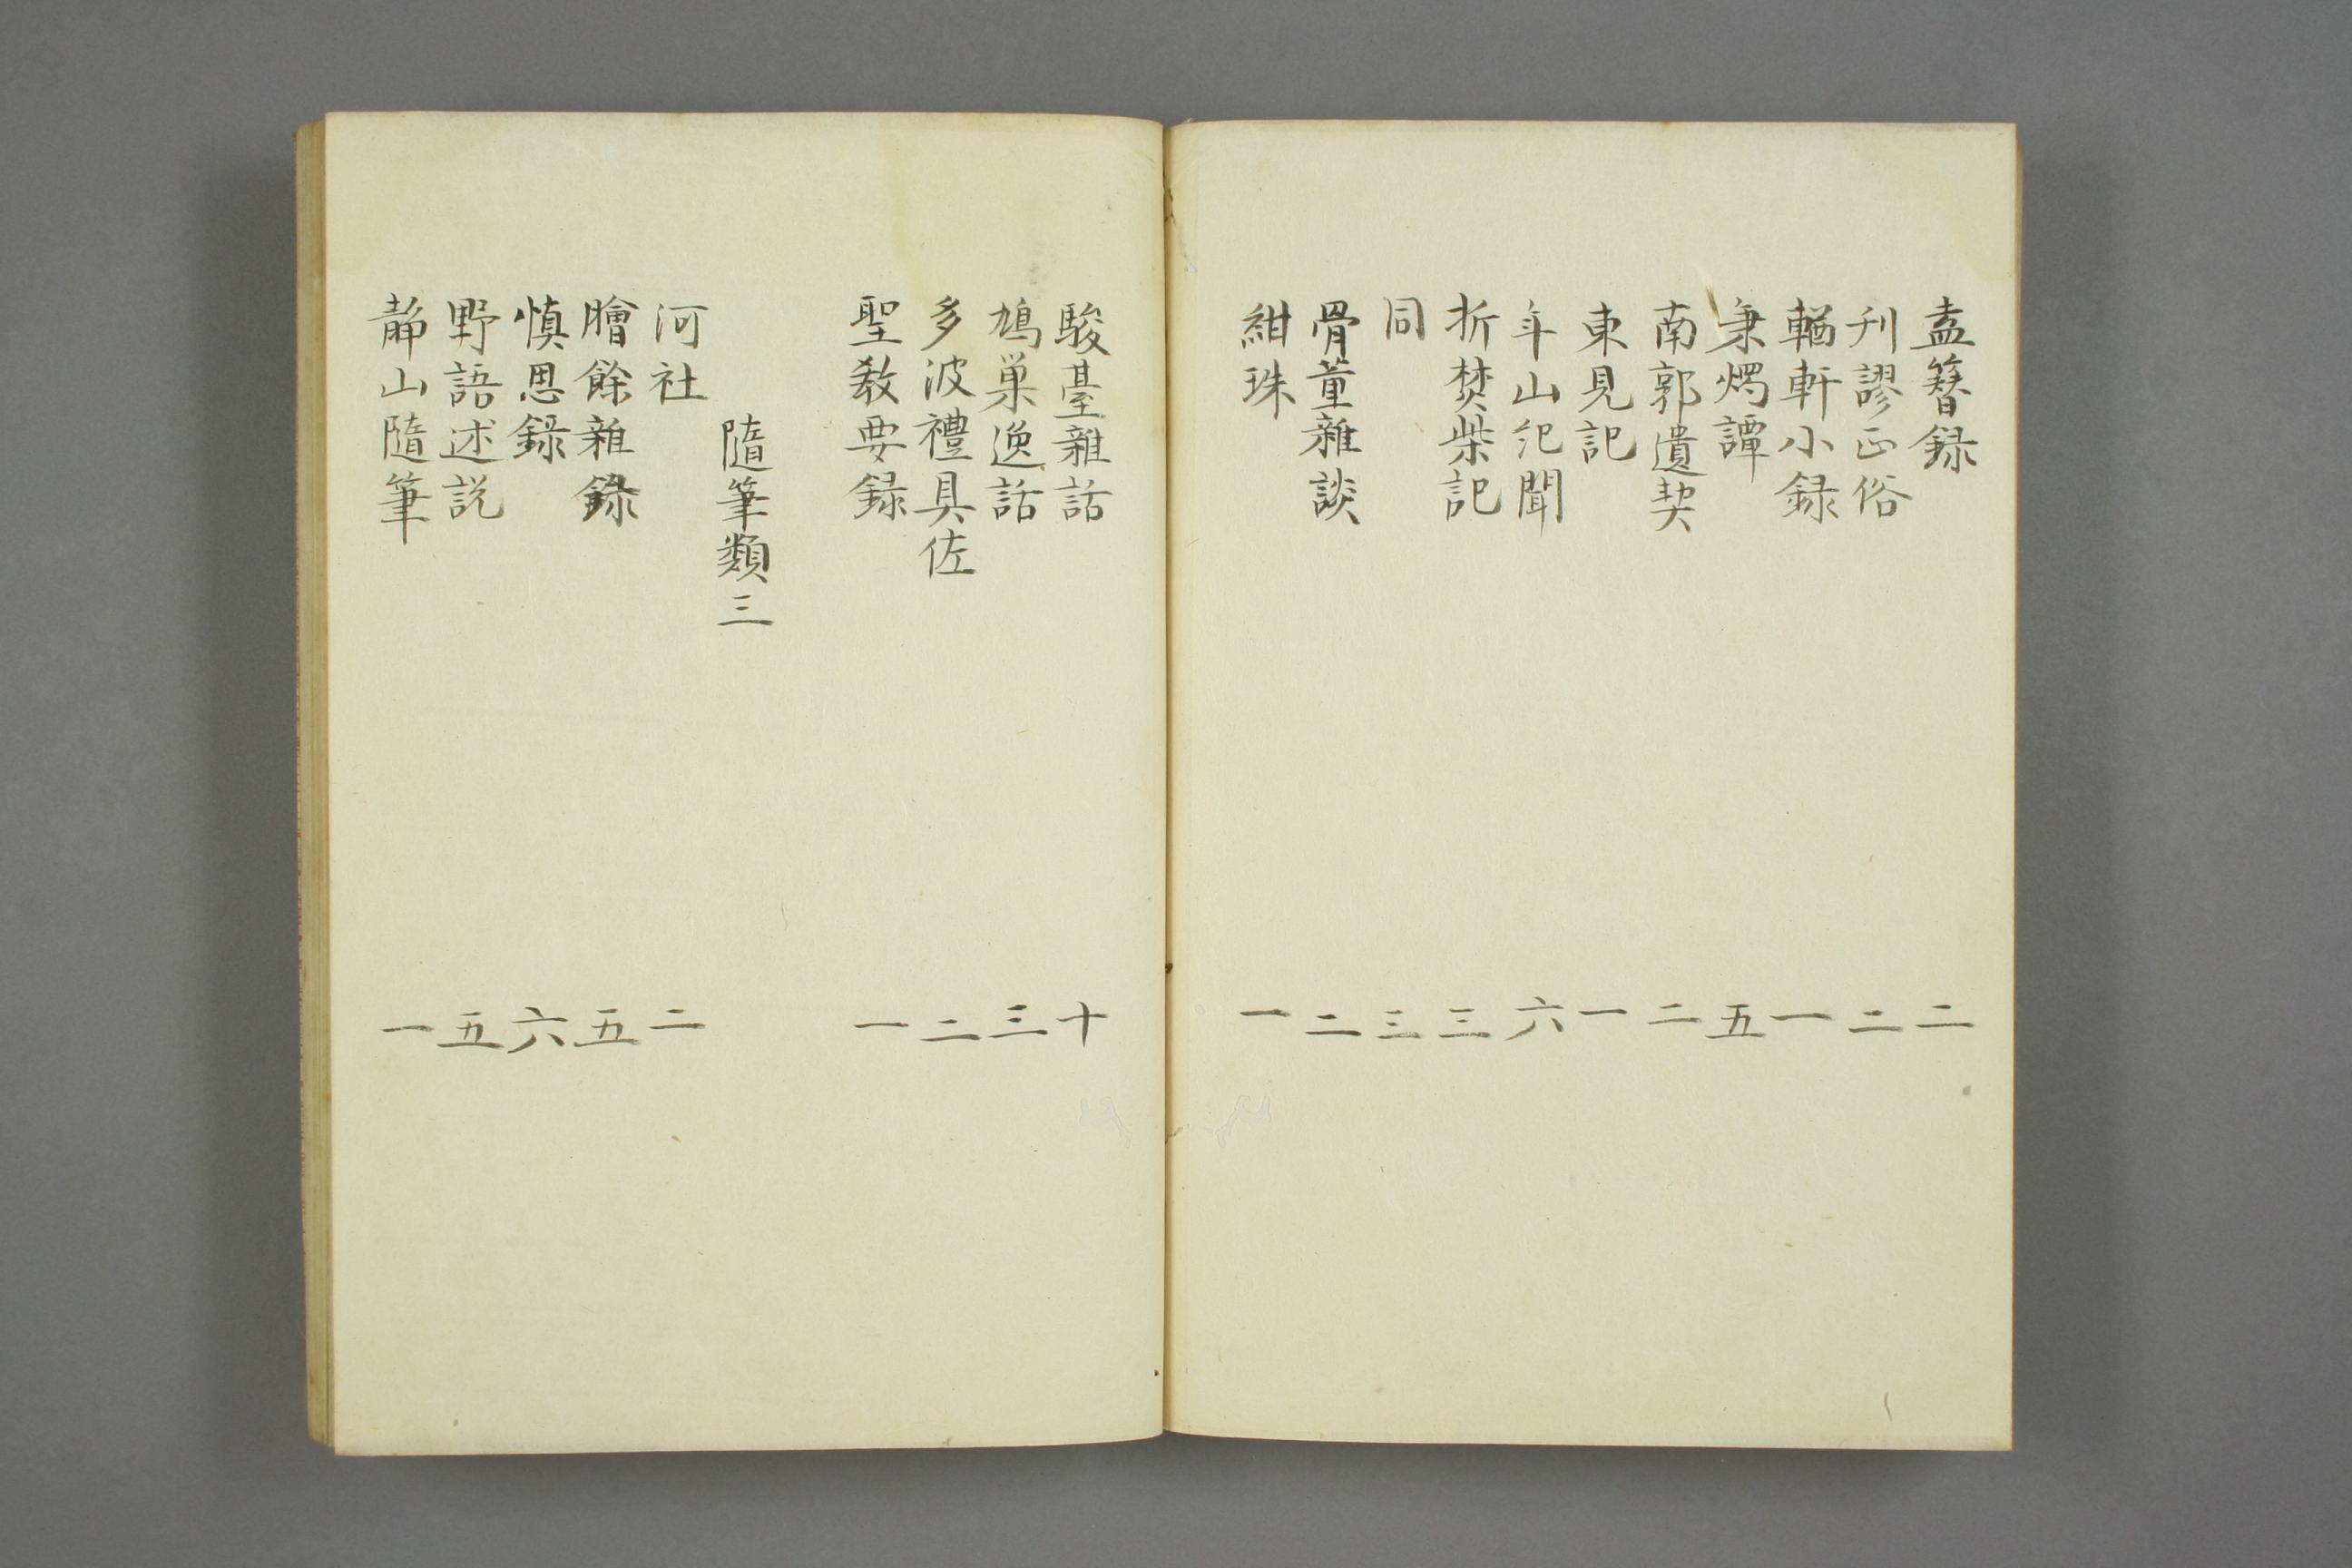 盍簪録 二
刋謬正俗 二
輶軒小録 一
秉燭譚 五
南郭遺契 二
東見記 一
年山紀聞 六
折焚柴記 三
同 三
骨董雜談 二
紺珠 一
駿臺雜話 十
鳩巣逸話 三
多波禮具佐 二
聖教要録 一
隨筆類三
河社 二
膾餘雜録 五
慎思録 六
野語述説 五
靜山隨筆 一